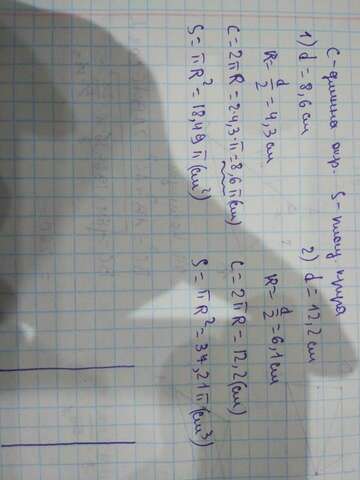 C-длина окр. S-площ. круга
1) d = 8,6 см
R = d/2 = 4,3 см
C = 2πR = 2·4,3·π = 8,6π (см)
S = πR² = 18,49π (см²)
2) d = 12,2 см
R = d/2 = 6,1 см
C = 2πR = 12,2 (см)
S = πR² = 37,21π (см³)